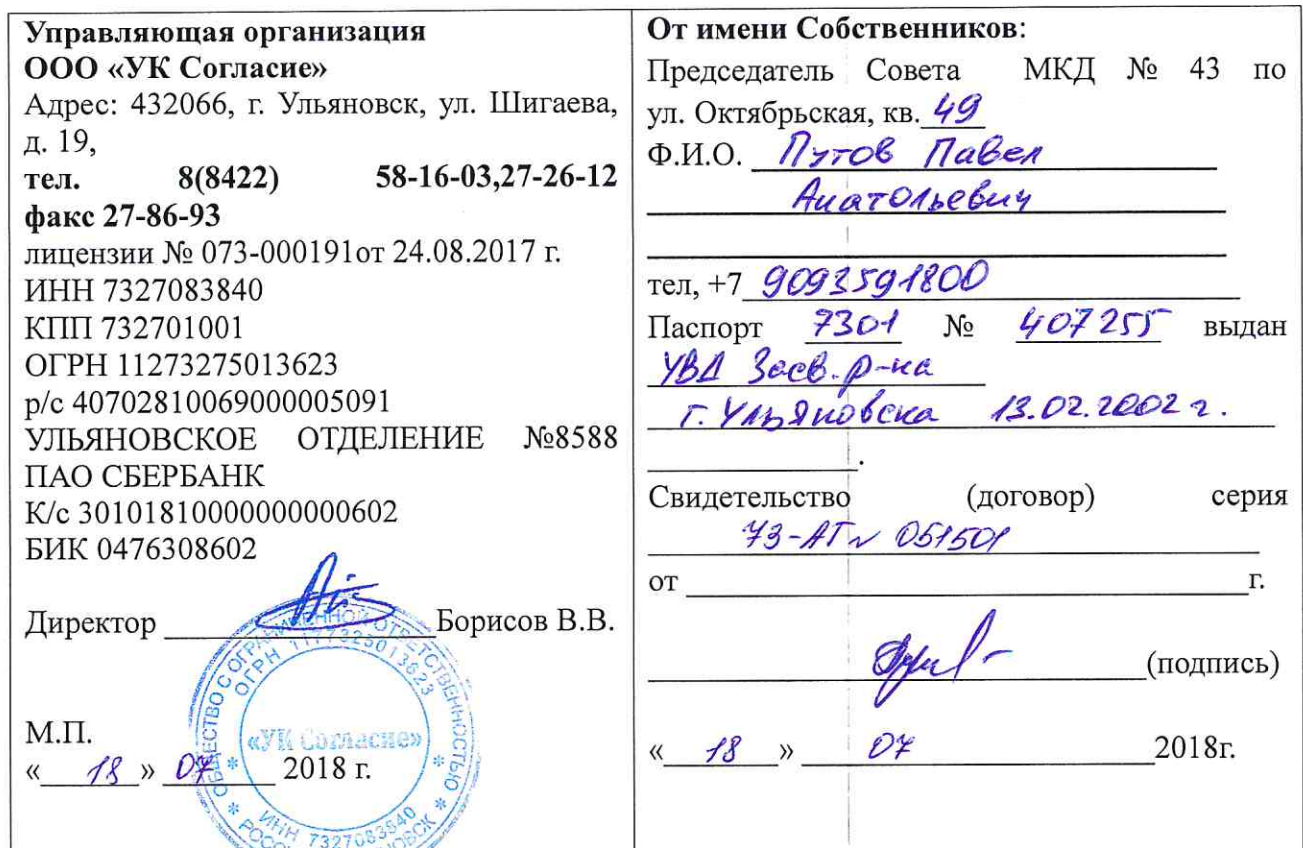 Управляющая организация
ООО «УК Согласие»
Адрес: 432066, г. Ульяновск, ул. Шигаева,
д. 19,
тел. 8(8422) 58-16-03,27-26-12
факс 27-86-93
лицензии № 073-000191от 24.08.2017 г.
ИНН 7327083840
КПП 732701001
ОГРН 11273275013623
р/с 40702810069000005091
УЛЬЯНОВСКОЕ ОТДЕЛЕНИЕ №8588
ПАО СБЕРБАНК
К/с 30101810000000000602
БИК 0476308602
Директор Борисов В.В.
М.П.
« 18 » 07 2018 г.
ОБЩЕСТВО С ОГРАНИЧЕННОЙ ОТВЕТСТВЕННОСТЬЮ
ОГРН 1177325013623
«УК Согласие»
ИНН 7327083840
От имени Собственников:
Председатель Совета МКД № 43 по
ул. Октябрьская, кв. 49
Ф.И.О. Путов Павел
Анатольевич
тел, +7 9093591800
Паспорт 7301 № 407255 выдан
УВД Засв. р-на
г. Ульяновска 13.02.2002 г.
Свидетельство (договор) серия
73-АТ № 051501
от г.
(подпись)
« 18 » 07 2018г.